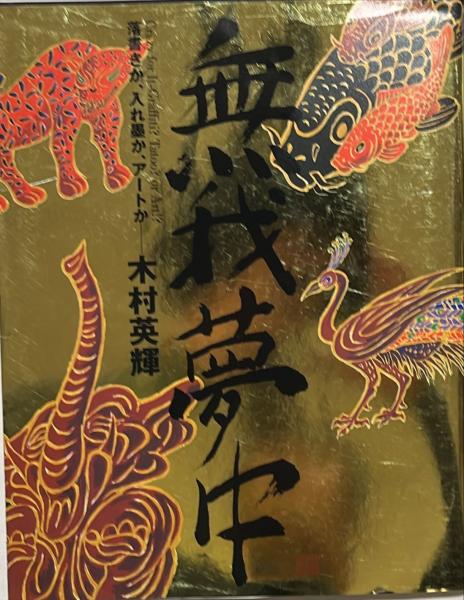 無我夢中
落書きか、入れ墨か、アートか──木村英輝
Graffiti? Tattoo? or Art?